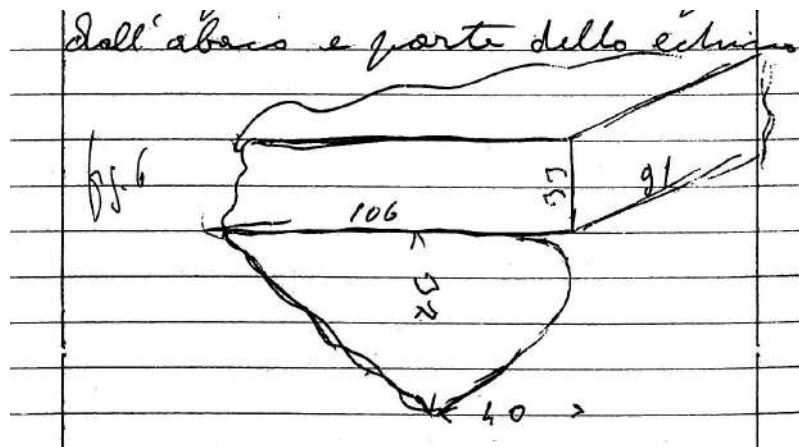 dall'abaco e parte dello echino
fig. 6
91
106
40